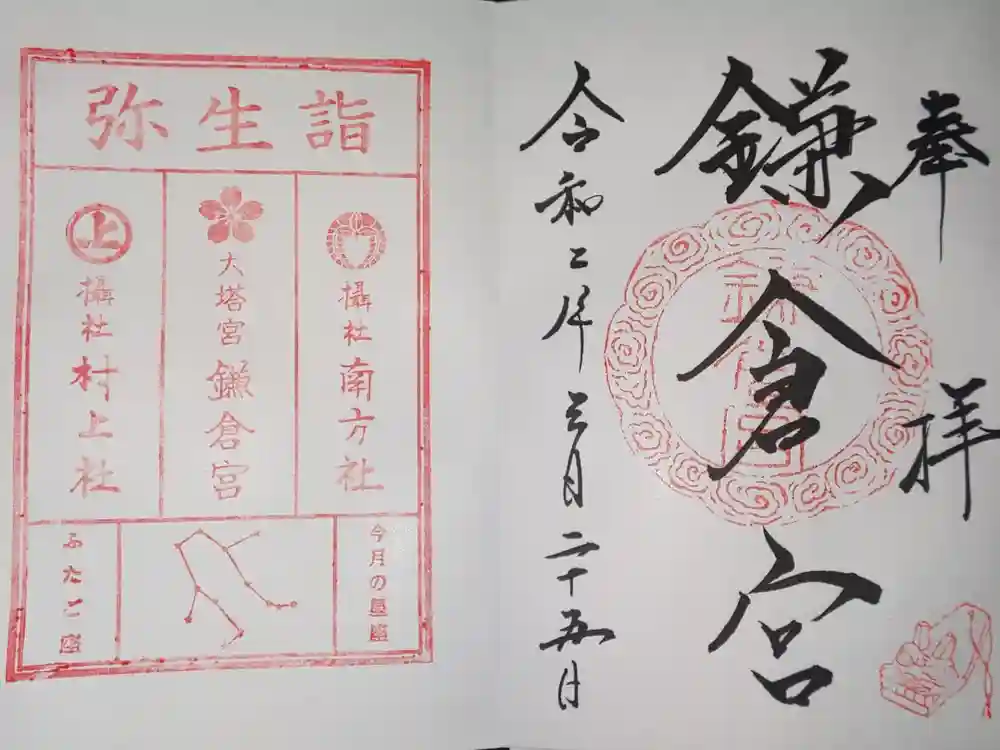 奉拝
鎌倉宮
令和二年三月二十五日
弥生詣
攝社 南方社
大塔宮 鎌倉宮
上
攝社 村上社
今月の星座
ふたご座